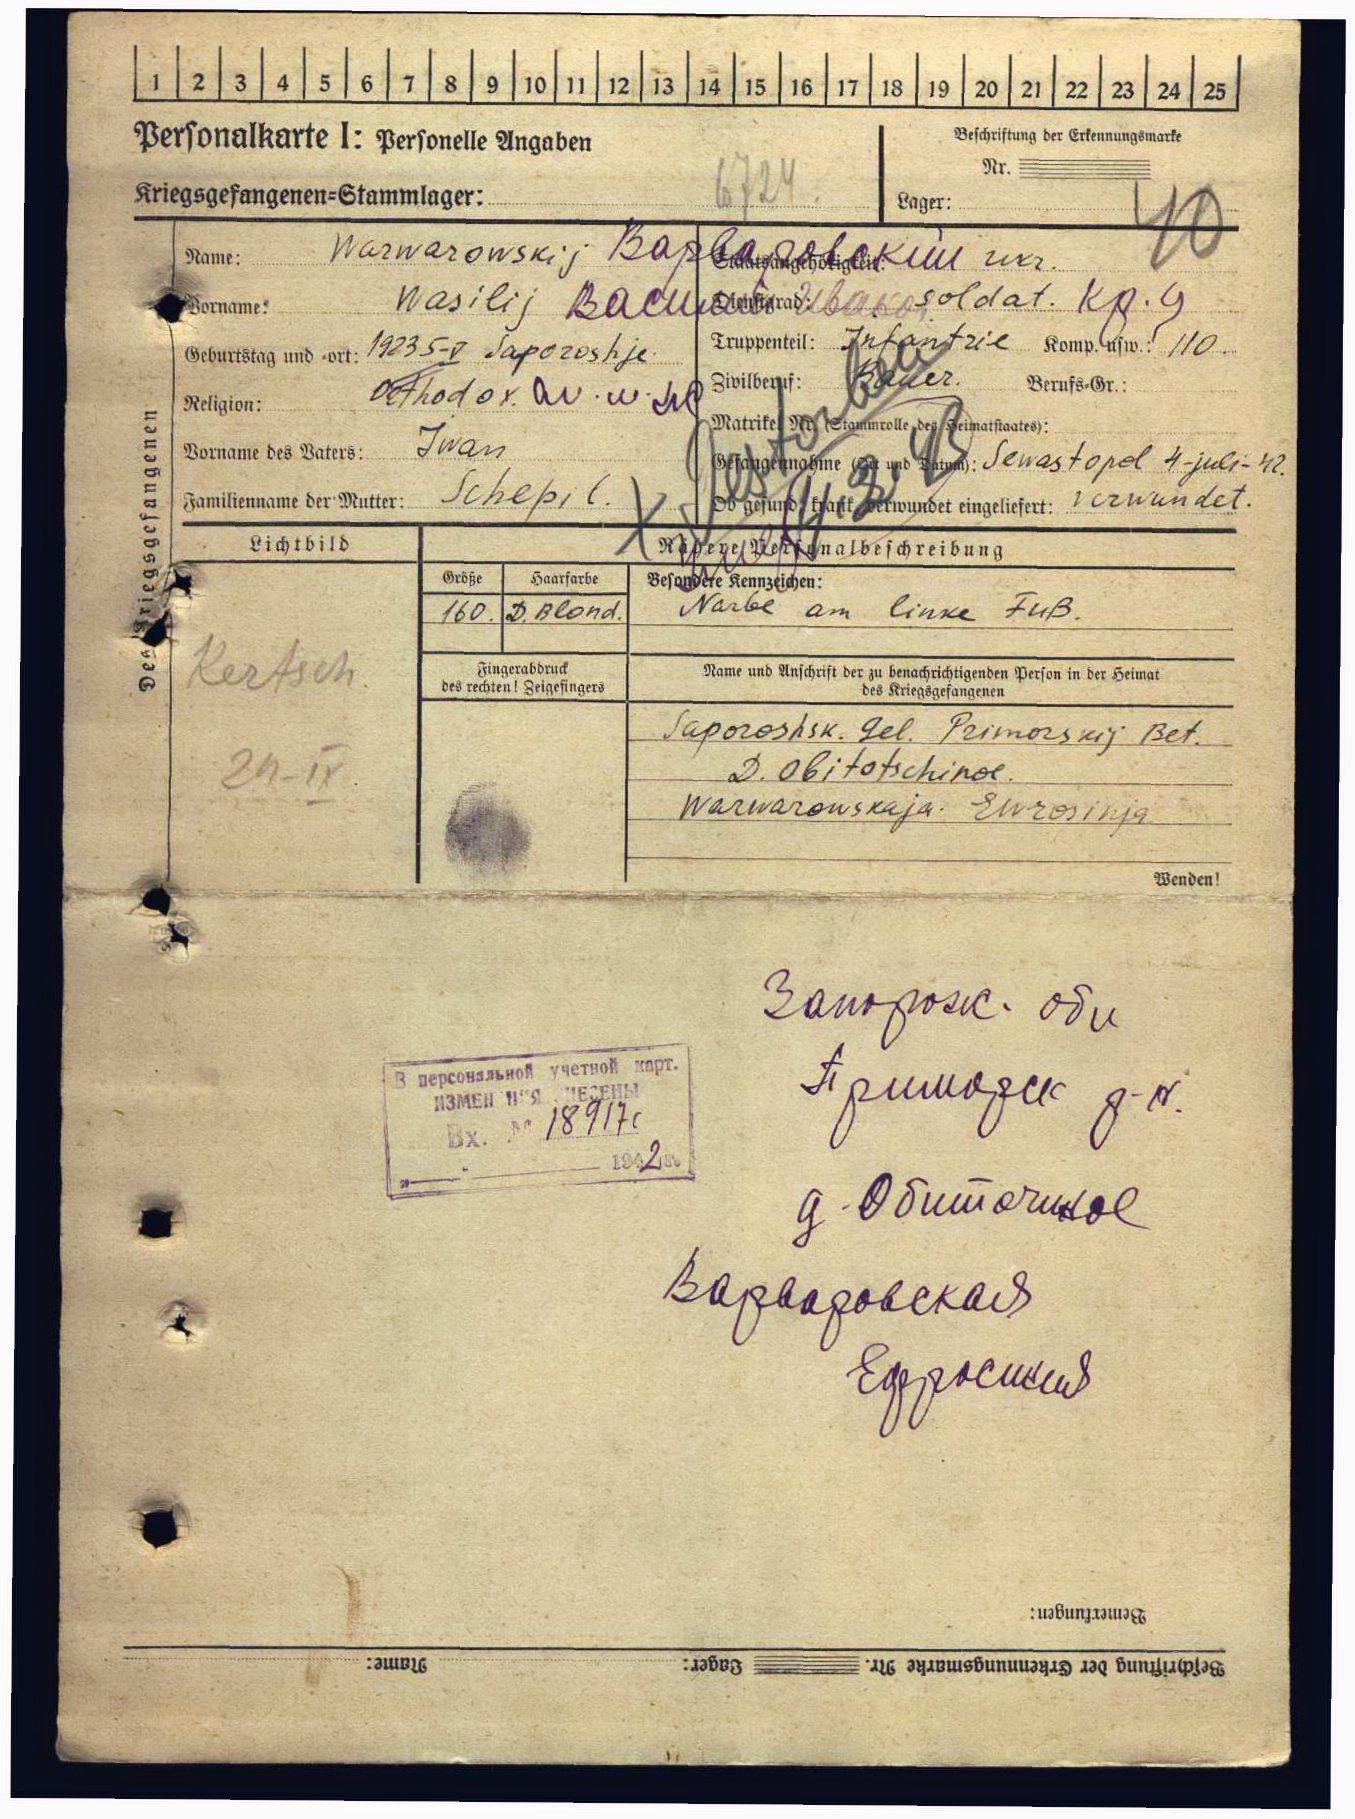 1 2 3 4 5 6 7 8 9 10 11 12 13 14 15 16 17 18 19 20 21 22 23 24 25
Personalkarte I: Personelle Angaben
Kriegsgefangenen-Stammlager:
6724.
Beschriftung der Erkennungsmarke
Nr.
Lager:
40
Des Kriegsgefangenen
Name: Warwarowskij Варваровский
Vorname: Wasilij Василий Иванов
Geburtstag und -ort: 1923 5-V Saporoshje
Religion: Orthodox.
Vorname des Vaters: Iwan
Familienname der Mutter: Schepil.
Staatsangehörigkeit: ukr.
Dienstgrad: soldat. Кр.
Truppenteil: Infantrie Komp. usw.: 110.
Zivilberuf: Bauer. Berufs-Gr.:
Matrikel Nr. (Stammrolle des Heimatstaates):
Gefangennahme (Ort und Datum): Sewastopol 4-juli-42.
Ob gesund, krank, verwundet eingeliefert: verwundet.
X Gestorben
Lichtbild
Nähere Personalbeschreibung
Größe
160.
Haarfarbe
D. Blond.
Besondere Kennzeichen:
Narbe am linke Fuß.
Kertsch
29-IX
Fingerabdruck
des rechten! Zeigefingers
Name und Anschrift der zu benachrichtigenden Person in der Heimat
des Kriegsgefangenen
Saporoshsk. Gel. Primorskij Bet.
D. Obitotschinoe.
Warwarowskaja. Ewrosinja
Wenden!
Запорожк. обл
Приморск р-н.
д. Обиточиное
Варваровская
Ефросиния
В персональной учетной карт.
ИЗМЕНЕНИЯ ВНЕСЕНЫ
Вх. № 18917с
1942 г.
Bemerkungen:
Beschriftung der Erkennungsmarke Nr. Lager: Name: